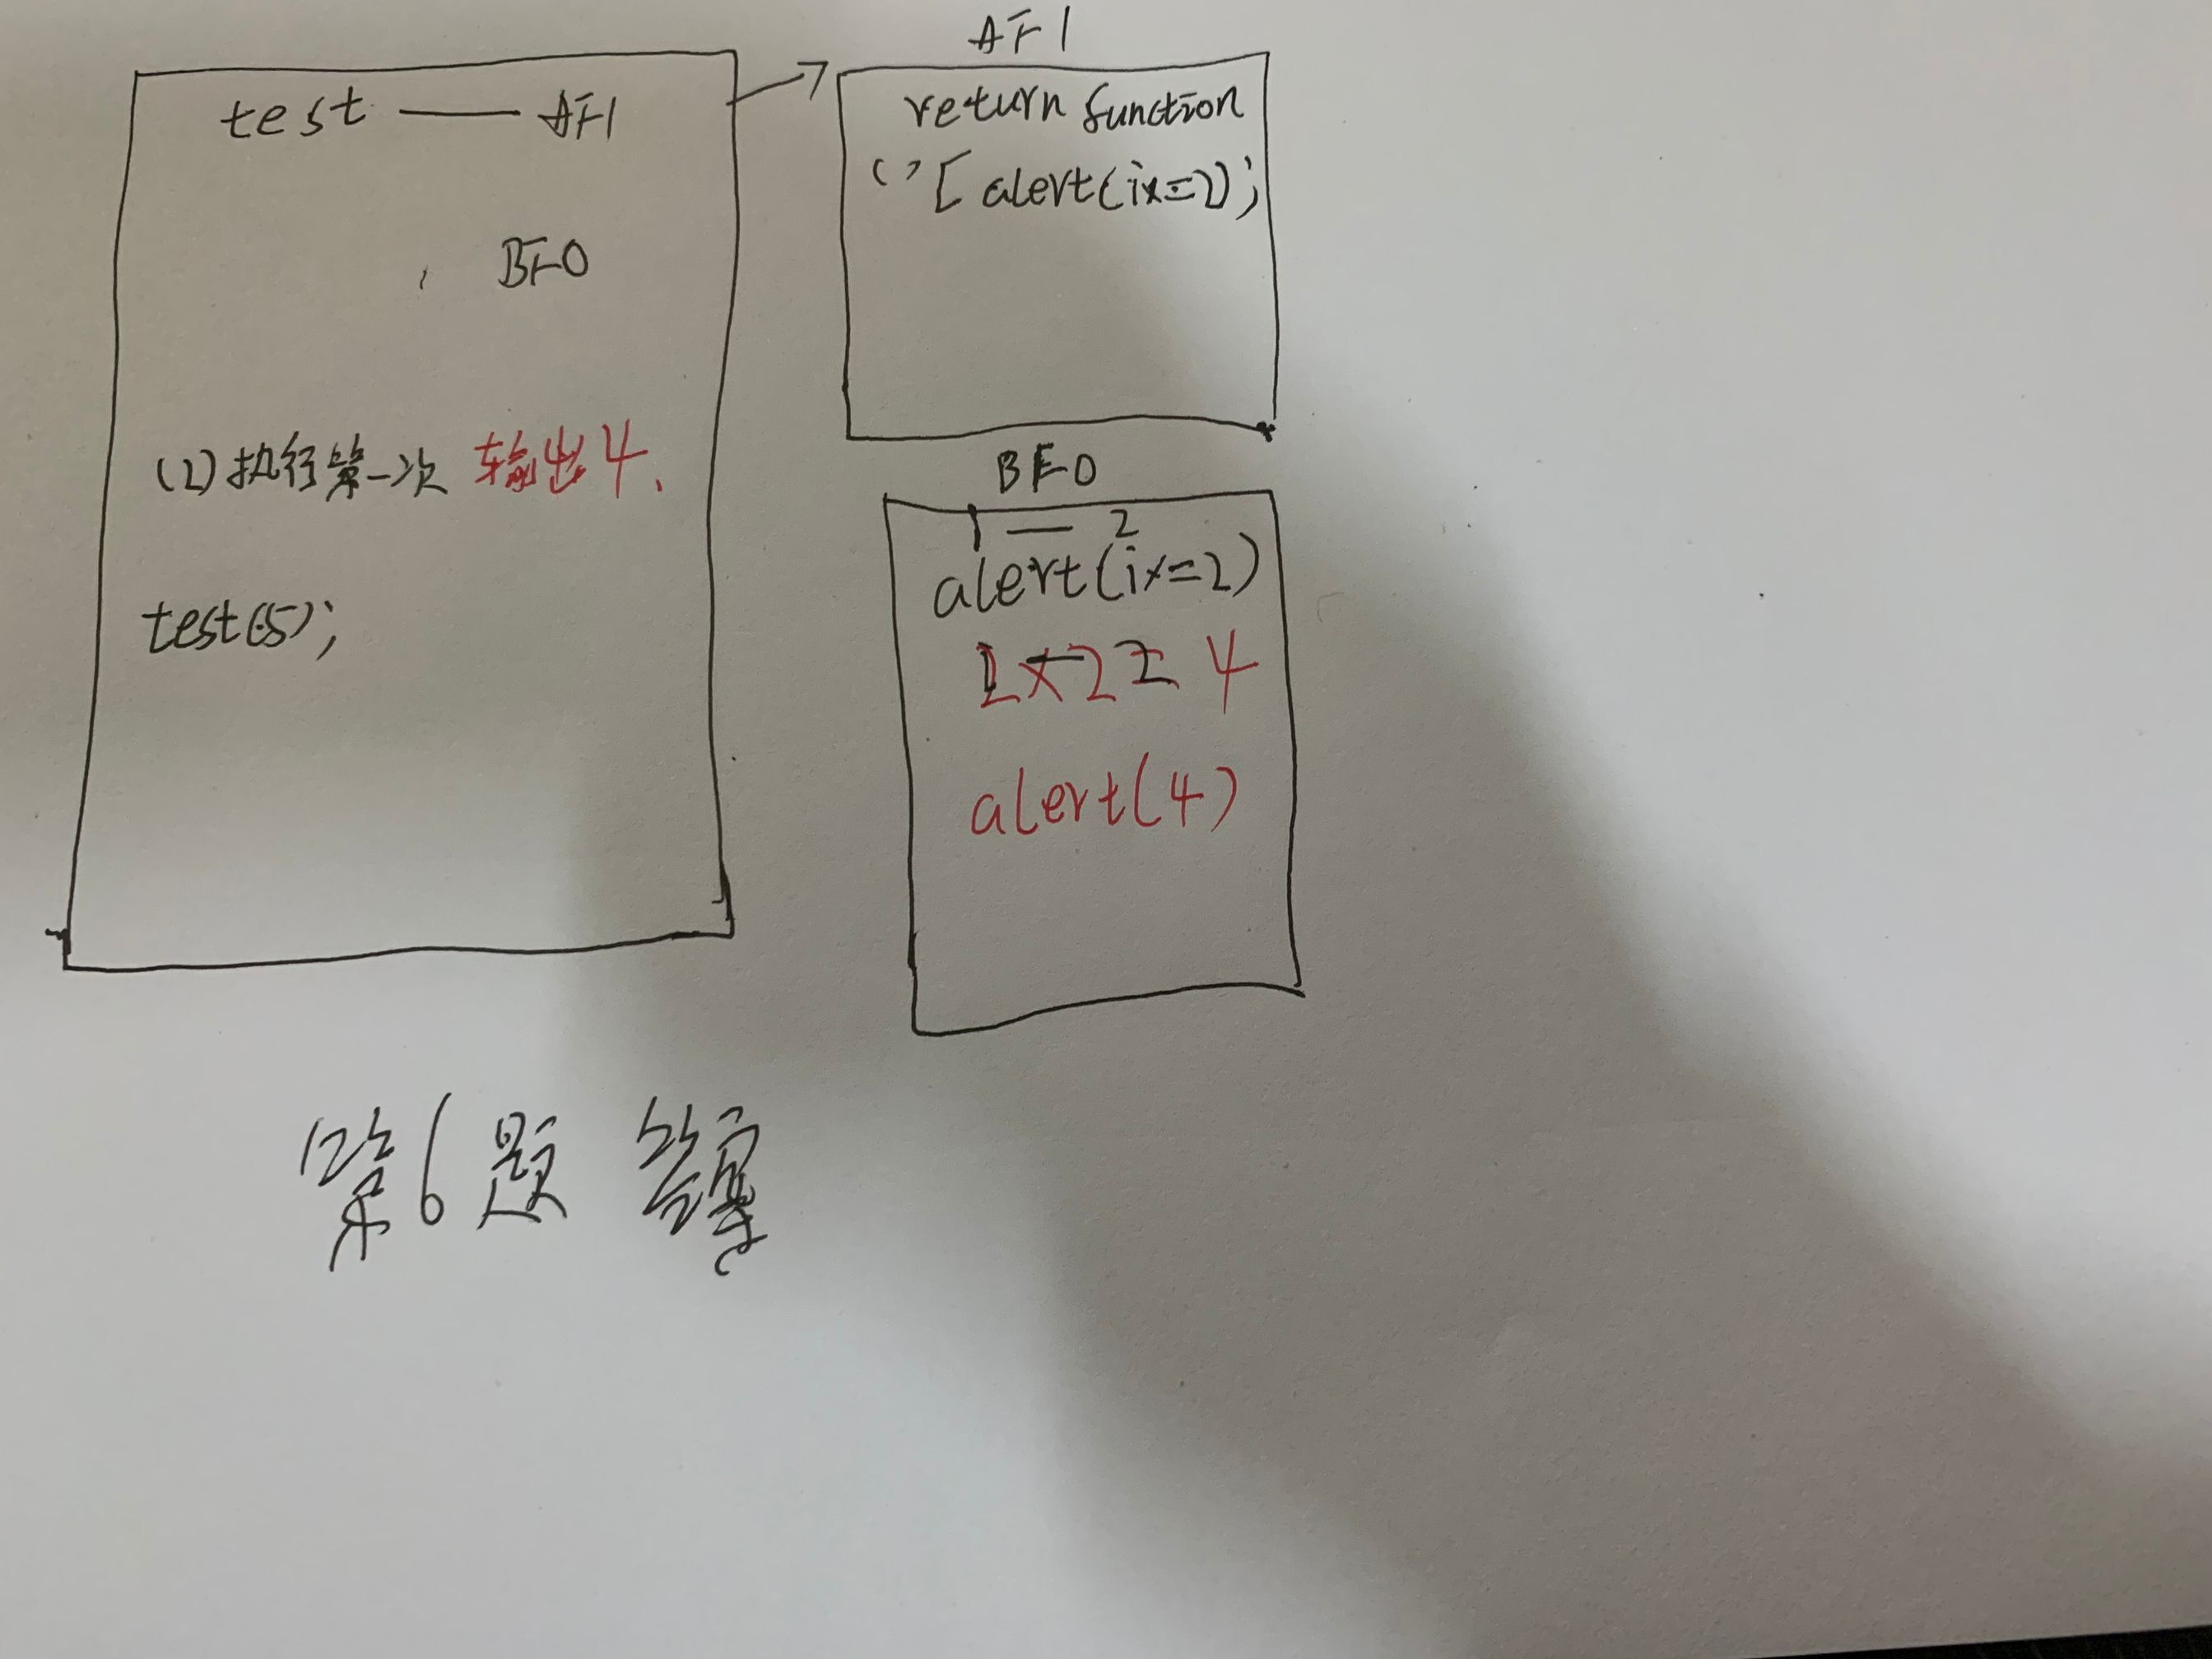 test —— AF1
BF0
(2)执行第一次 输出4、
test(5);
AF1
return function
()[alert(i*=2);
BF0
1 — 2
alert(i*=2)
2*2=4
alert(4)
第6题 答案